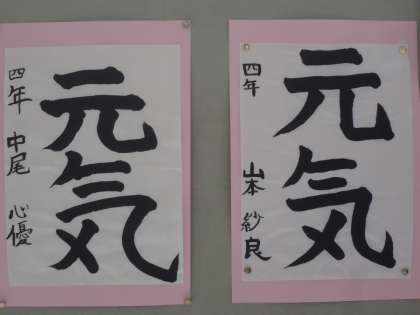 元気
四年 山本 紗良
元気
四年 中尾 心優